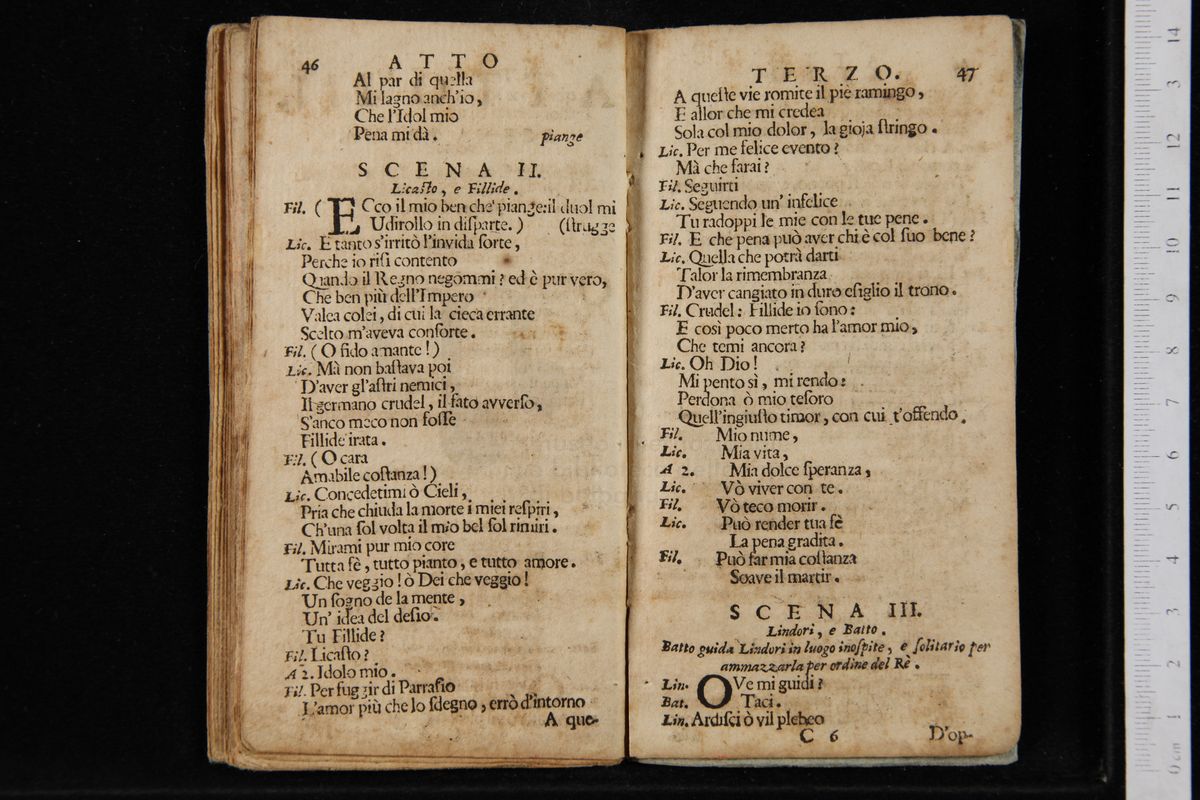 46 ATTO
Al par di quella
Mi lagno anch'io,
Che l'Idol mio
Pena mi dà. piange
SCENA II.
Licaſto, e Fillide.
Fil. (ECco il mio ben che piange: il duol mi
Udirollo in diſparte.) (ſtrugge
Lic. E tanto s'irritò l'invida ſorte,
Perche io riſi contento
Quando il Regno negommi? ed è pur vero,
Che ben più dell'Impero
Valea colei, di cui la cieca errante
Scelto m'aveva conſorte.
Fil. (O fido amante!)
Lic. Mà non baſtava poi
D'aver gl'aſtri nemici,
Il germano crudel, il fato avverſo,
S'anco meco non foſſe
Fillide irata.
Fil. (O cara
Amabile coſtanza!)
Lic. Concedetimi ò Cieli,
Pria che chiuda la morte i miei reſpiri,
Ch'una ſol volta il mio bel ſol rimiri.
Fil. Mirami pur mio core
Tutta fè, tutto pianto, e tutto amore.
Lic. Che veggio! ò Dei che veggio!
Un ſogno de la mente,
Un' idea del deſio.
Tu Fillide?
Fil. Licaſto?
A 2. Idolo mio.
Fil. Per fuggir di Parraſio
L'amor più che lo ſdegno, errò d'intorno
A que-
TERZO. 47
A queſte vie romite il piè ramingo,
E allor che mi credea
Sola col mio dolor, la gioja ſtringo.
Lic. Per me felice evento?
Mà che farai?
Fil. Seguirti
Lic. Seguendo un' infelice
Tu radoppi le mie con le tue pene.
Fil. E che pena può aver chi è col ſuo bene?
Lic. Quella che potrà darti
Talor la rimembranza
D'aver cangiato in duro eſiglio il trono.
Fil. Crudel: Fillide io ſono:
E così poco merto ha l'amor mio,
Che temi ancora?
Lic. Oh Dio!
Mi pento sì, mi rendo:
Perdona ò mio teſoro
Quell'ingiuſto timor, con cui t'offendo.
Fil. Mio nume,
Lic. Mia vita,
A 2. Mia dolce ſperanza,
Lic. Vò viver con te.
Fil. Vò teco morir.
Lic. Può render tua fè
La pena gradita.
Fil. Può far mia coſtanza
Soave il martir.
SCENA III.
Lindori, e Batto.
Batto guida Lindori in luogo inoſpite, e ſolitario per
ammazzarla per ordine del Rè.
Lin. OVe mi guidi?
Bat. Taci.
Lin. Ardiſci ò vil plebeo
C 6 D'op-
0 cm 1 2 3 4 5 6 7 8 9 10 11 12 13 14